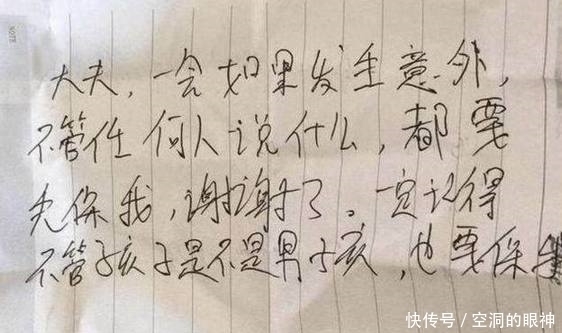 大夫，一会如果发生意外，
不管任何人说什么，都要
先保我，谢谢了。一定记得
不管孩子是不是男孩，也要保我
快传号／空洞的眼神